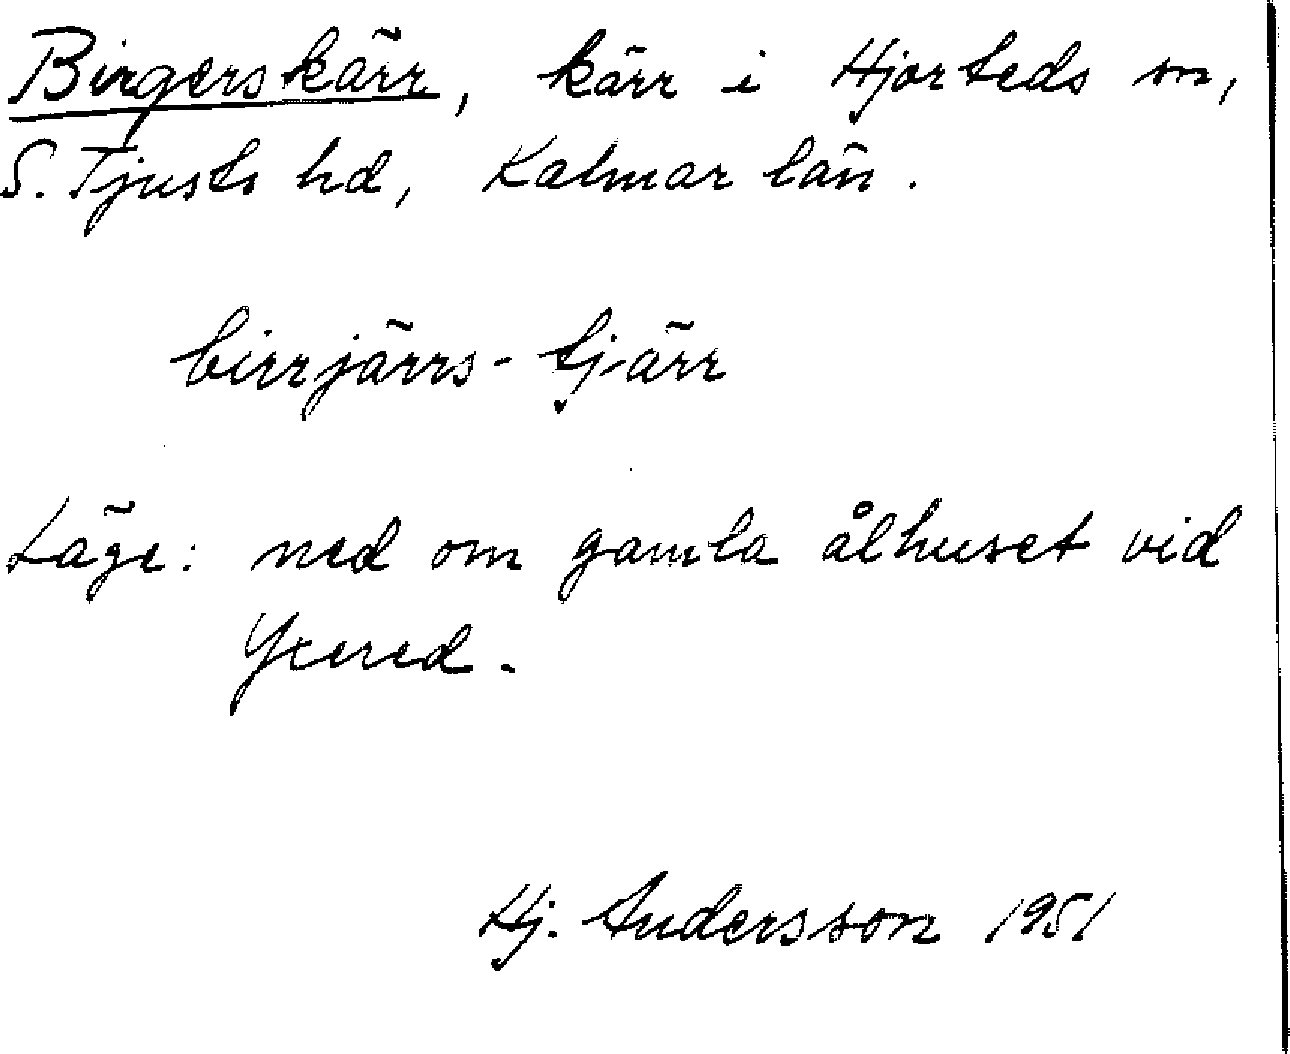 Birgerskärr, kärr i Hjorteds sn,
S. Tjusts hd, Kalmar län.
birrjärrs-tjärr
Läge: ned om gamla ålhuset vid
Yxered.
Hj. Andersson 1951